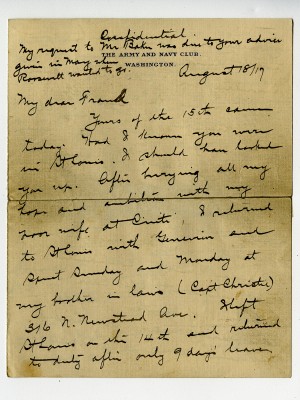 Confidential.
My request to Mr Baker was due to your advice
given in May when
Roosevelt wanted to go.
THE ARMY AND NAVY CLUB.
WASHINGTON.
August 18/17
My dear Frank
Yours of the 15th came
today. Had I known you were
in St Louis. I should have looked
you up. After burying all my
hope and ambition with my
poor wife at Cinti. I returned
to St Louis with Genevieve and
spent Sunday and Monday at
my brother in laws (Capt Christie)
316 N. Newstead Ave. I left
St Louis on the 14th and returned
to duty after only 9 days leave,